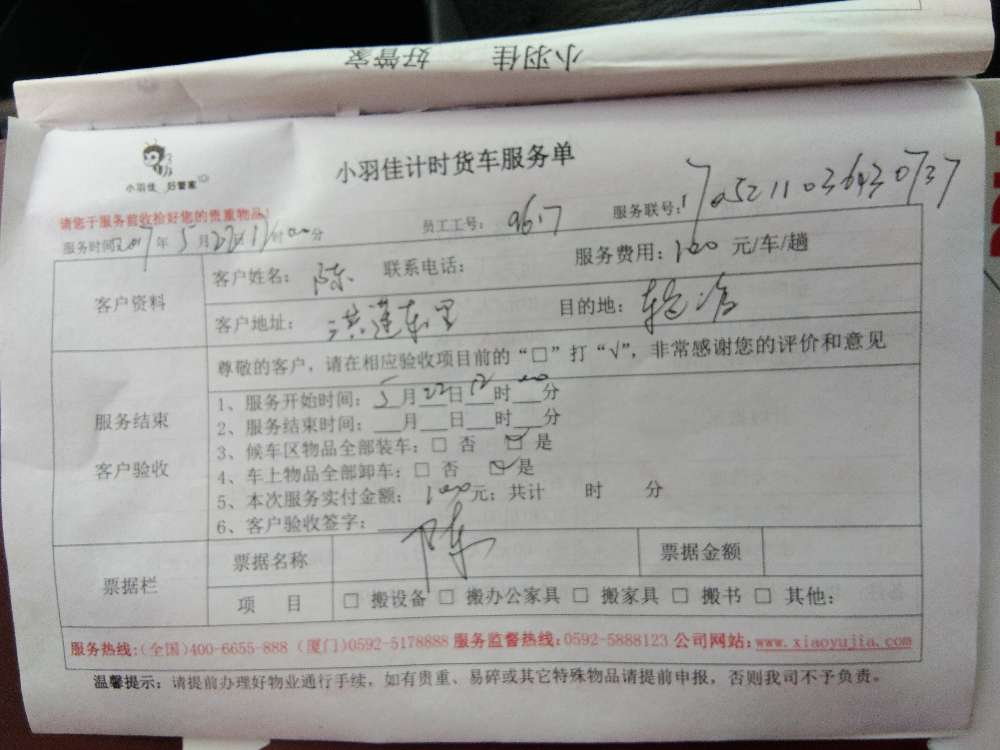 小羽佳 好管家
小羽佳 好管家
小羽佳计时货车服务单
请您于服务前收拾好您的贵重物品!
服务时间2017年5月22日12时00分 员工工号: 9617 服务联号:170521103643 0737
客户资料
客户姓名: 陈 联系电话: 服务费用: 100 元/车/趟
客户地址: 洪莲东里 目的地:
尊敬的客户，请在相应验收项目前的“□”打“√”，非常感谢您的评价和意见
服务结束
客户验收
1、服务开始时间: 5月22日12时00分
2、服务结束时间: ___月___日___时___分
3、候车区物品全部装车: □ 否 ☑ 是
4、车上物品全部卸车: □ 否 ☑ 是
5、本次服务实付金额: 100元; 共计 时 分
6、客户验收签字: 陈
票据栏
票据名称 票据金额
项 目 □ 搬设备 □ 搬办公家具 □ 搬家具 □ 搬书 □ 其他:
服务热线:(全国)400-6655-888 (厦门)0592-5178888 服务监督热线:0592-5888123 公司网站:www.xiaoyujia.com
温馨提示: 请提前办理好物业通行手续，如有贵重、易碎或其它特殊物品请提前申报，否则我司不予负责。